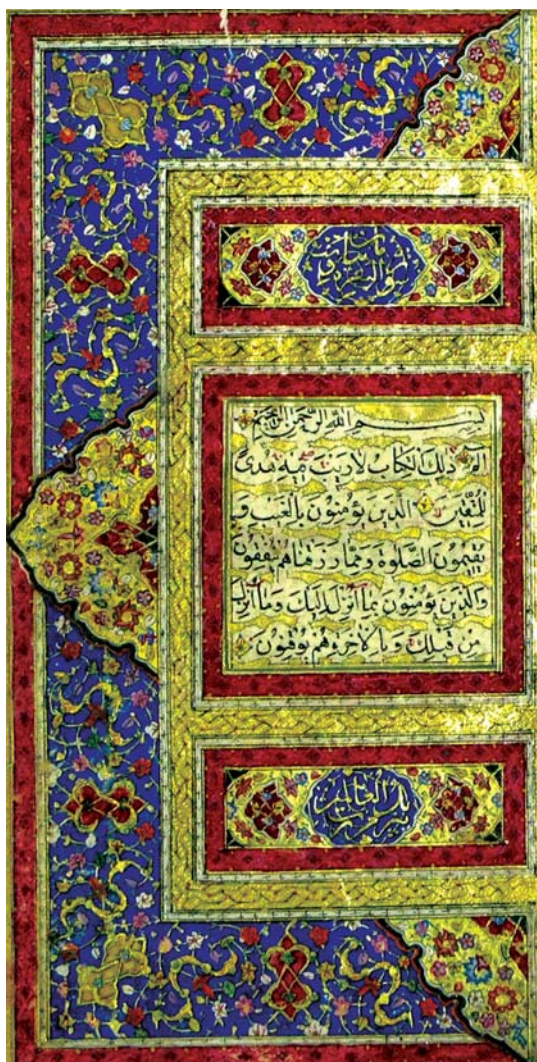 سورة البقرة
بِسْمِ اللهِ الرَّحْمٰنِ الرَّحِيمِ
الٓمٓ ذٰلِكَ الْكِتَابُ لَا رَيْبَ فِيهِ هُدًى
لِلْمُتَّقِينَ الَّذِينَ يُؤْمِنُونَ بِالْغَيْبِ وَ
يُقِيمُونَ الصَّلٰوةَ وَمِمَّا رَزَقْنَاهُمْ يُنْفِقُونَ
وَالَّذِينَ يُؤْمِنُونَ بِمَا أُنْزِلَ إِلَيْكَ وَمَا أُنْزِلَ
مِنْ قَبْلِكَ وَبِالْآخِرَةِ هُمْ يُوقِنُونَ
تنزيل من رب العالمين